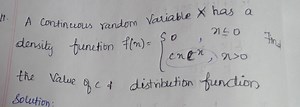 11. A continuous random variable X has a
density function f(x) = { 0 , x ≤ 0 Find
cx e^x , x > 0
the value of c & distribution function
Solution: